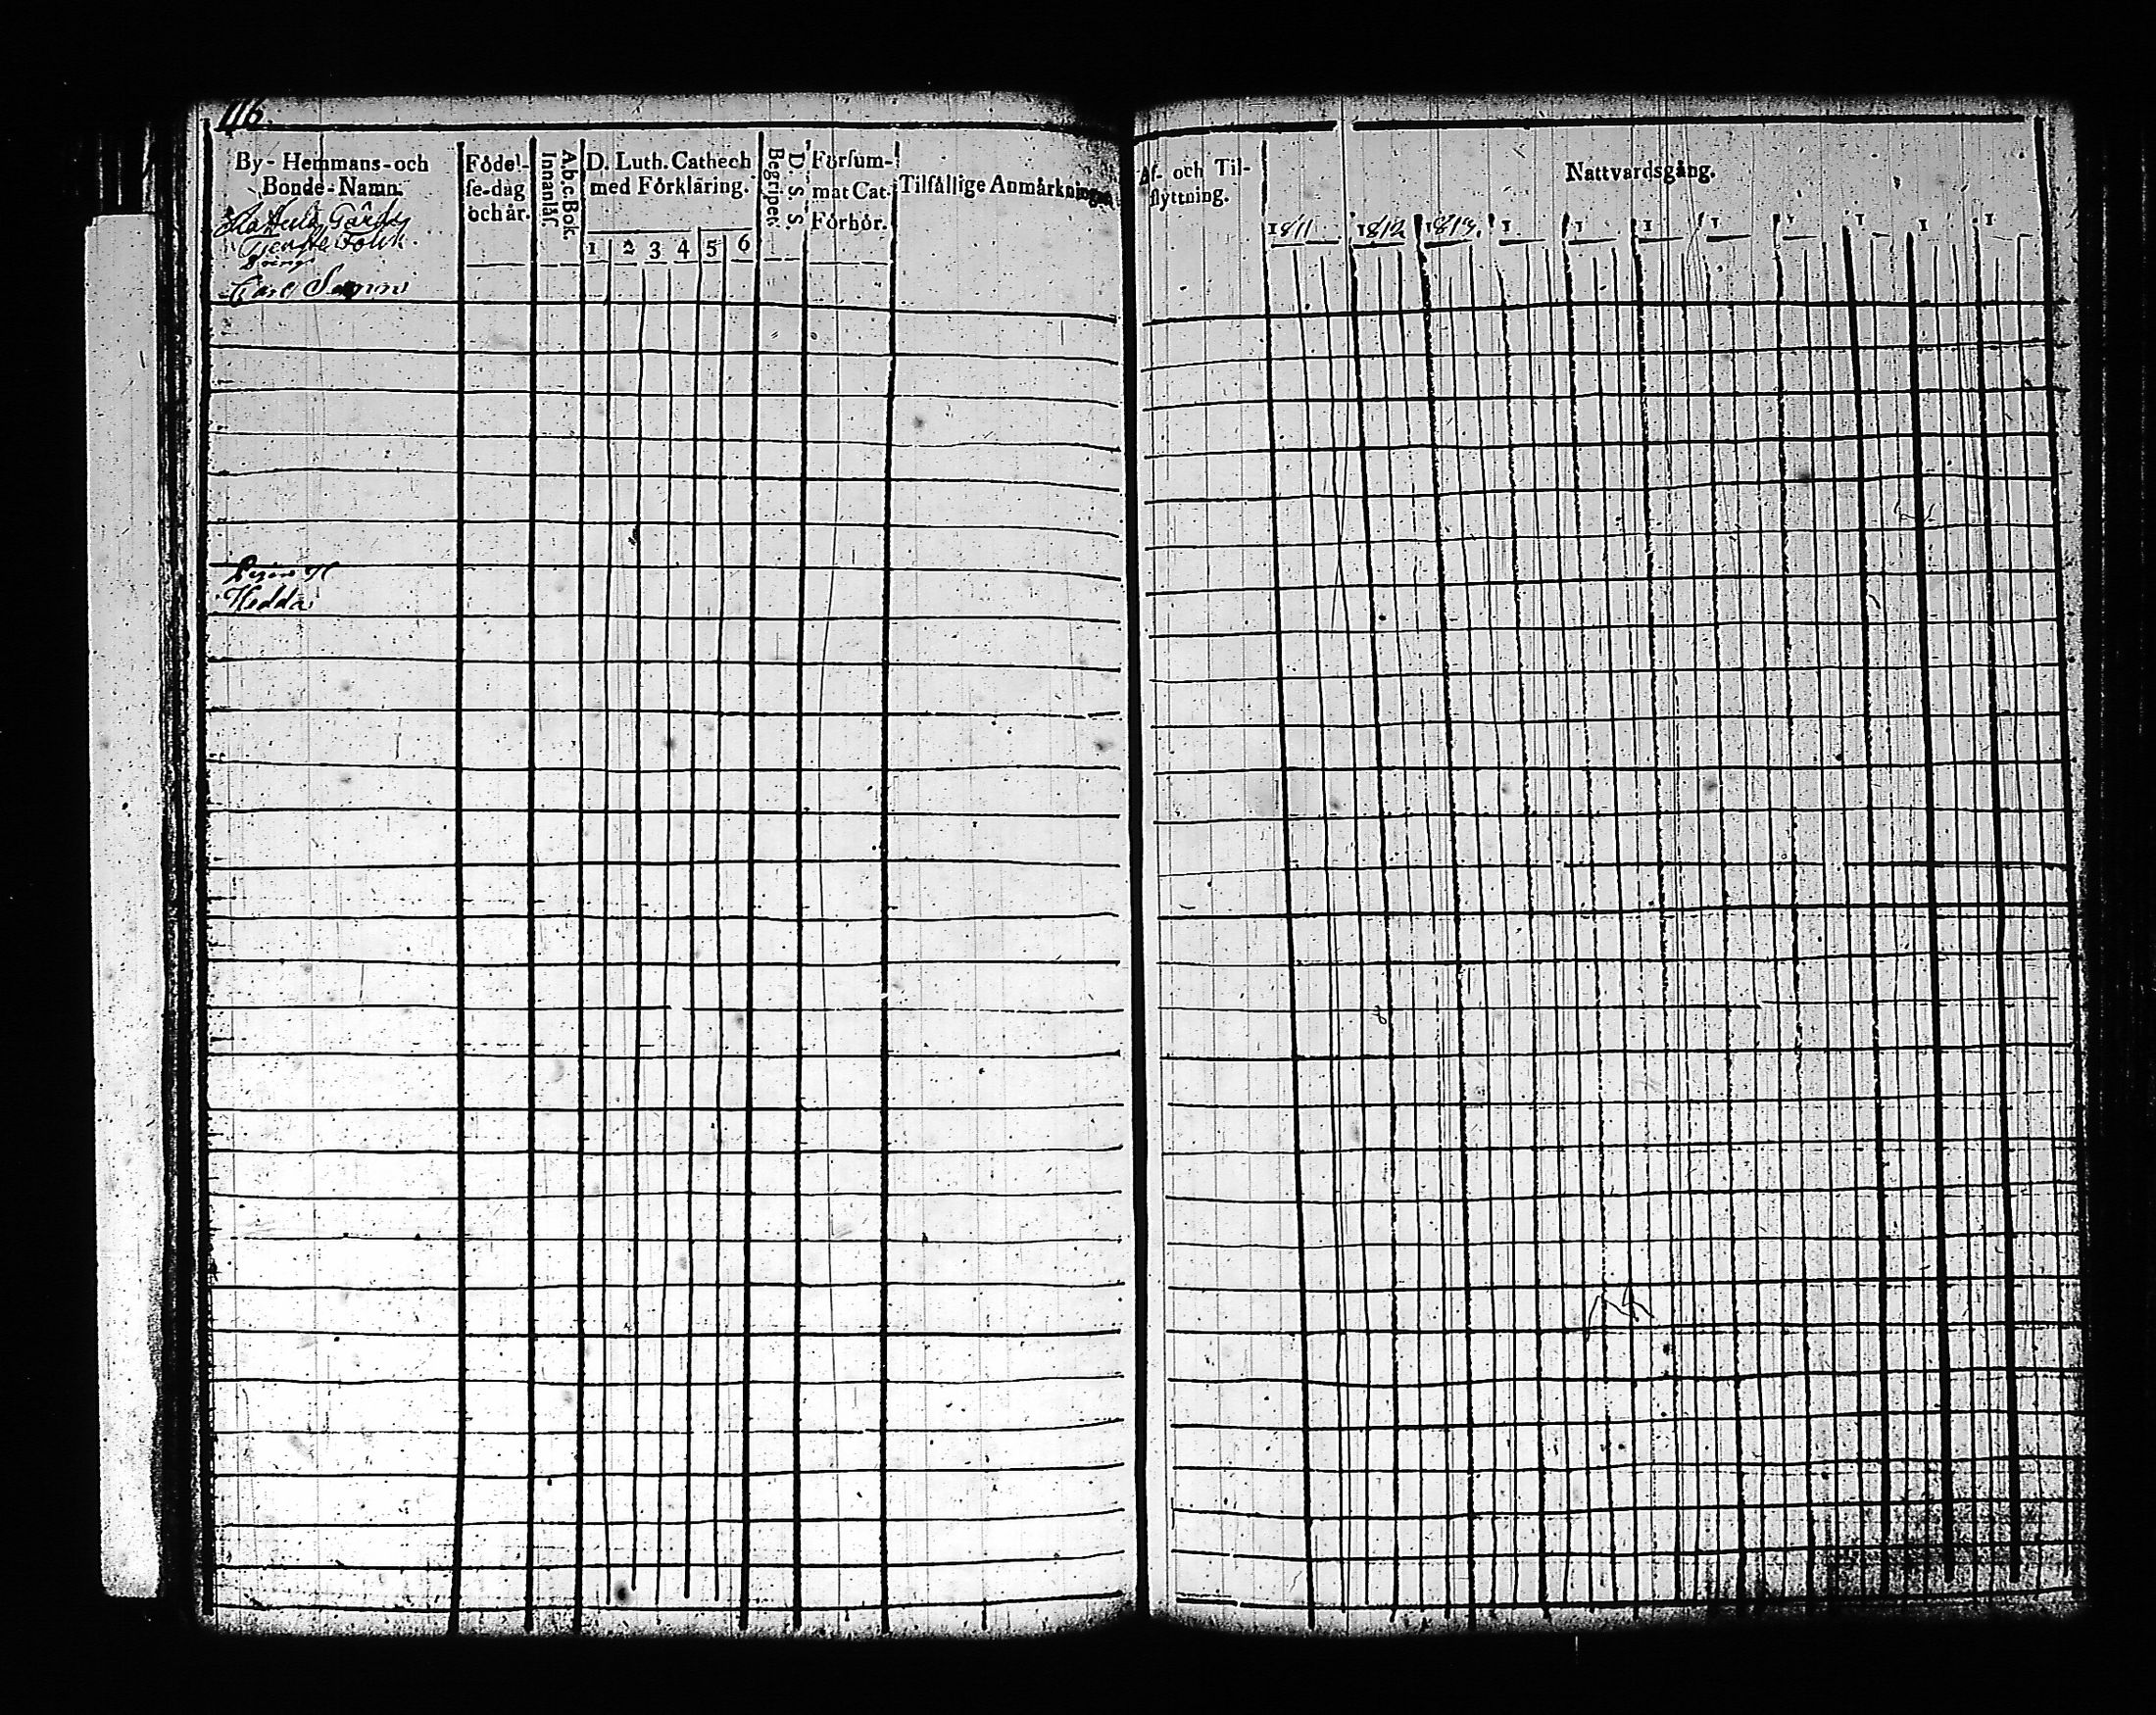 116.
By- Hemmans- och
Bonde-Namn.
Gårds
Tienste Folck.
Carl
Hedda
Födel-
se-dag
och år.
A.b.c.Bok.
Innanläs.
D. Luth. Cathech
med Förklaring.
1 2 3 4 5 6
Begriper.
D. S. S.
Försum-
mat Cat.
Förhör.
Tilfällige Anmärkningar
Af- och Til-
flyttning.
Nattvardsgång.
1811 1812 1813. 1 1 1 1 1 1 1